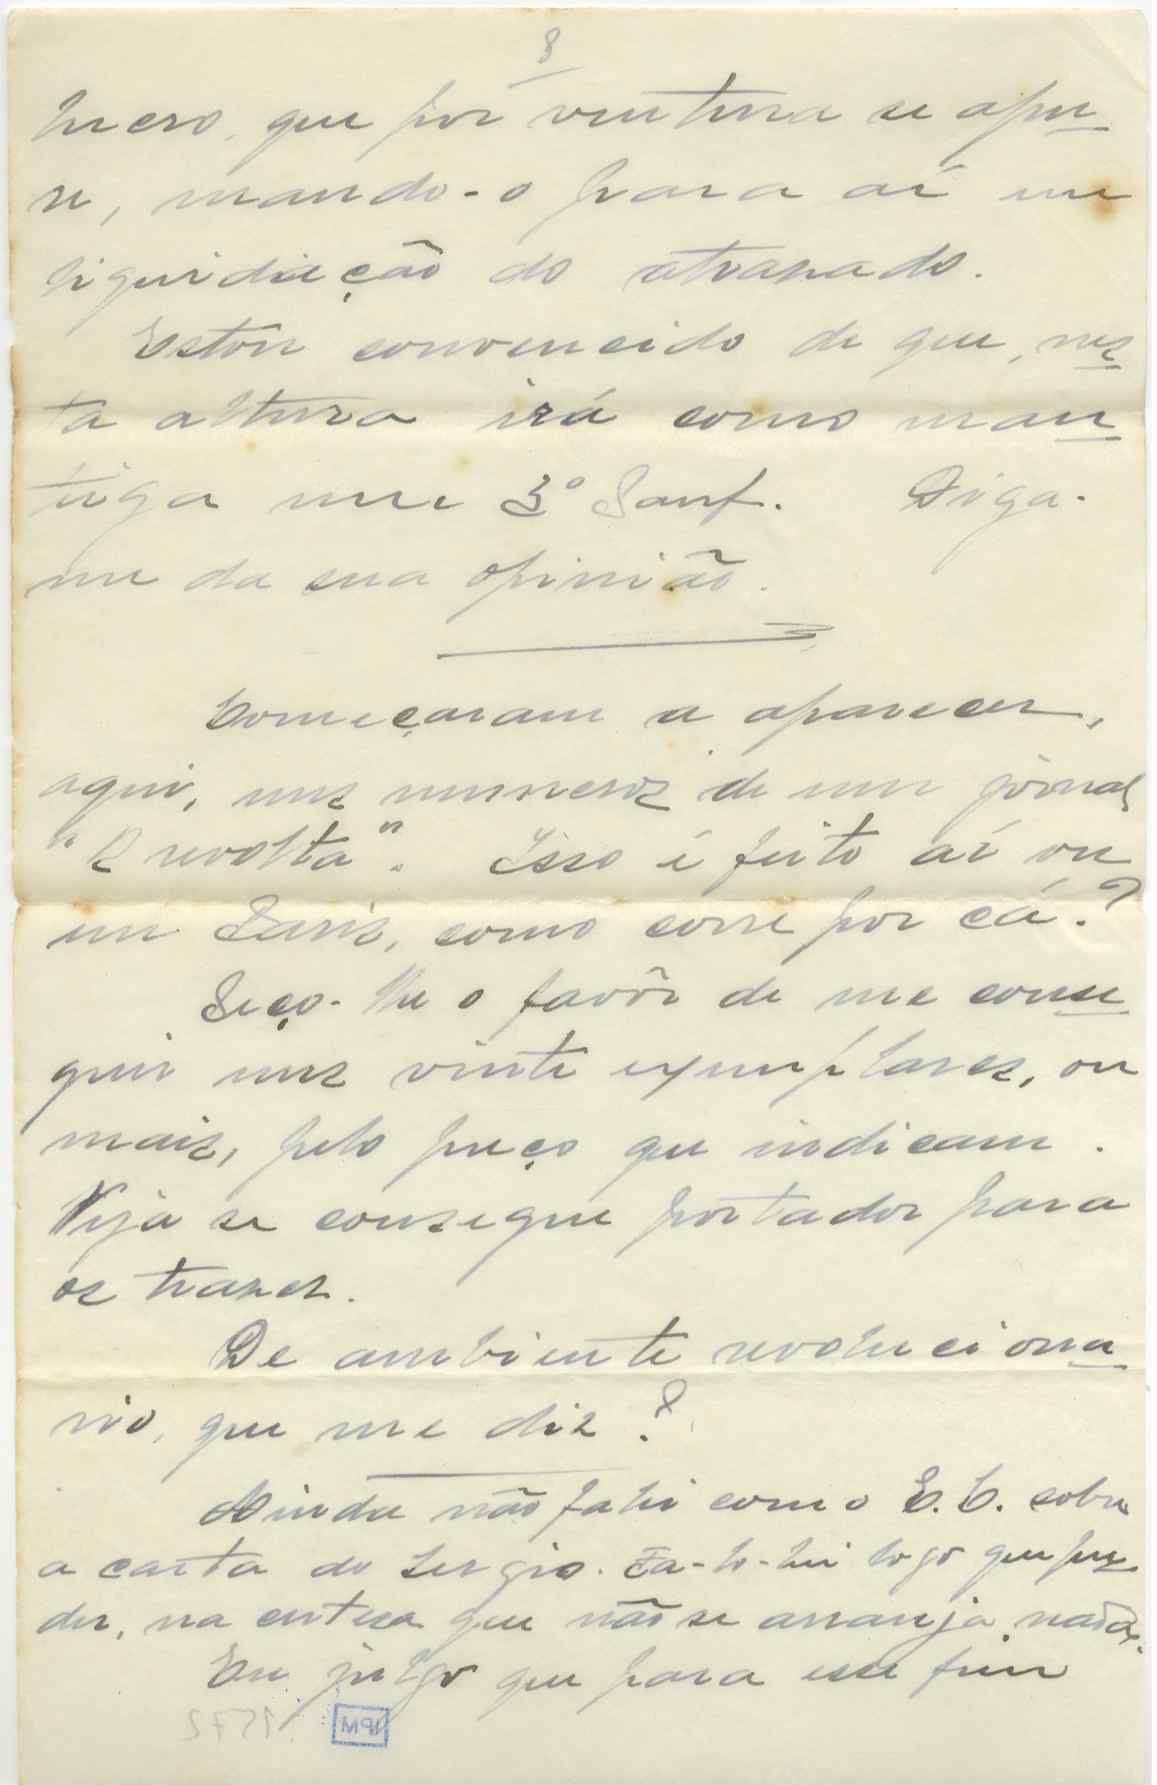 8
lucro, que por ventura se apu-
re, mando-o para aí em
liquidação do atrasado.
Estou convencido de que, nes-
ta altura irá como man-
teiga um 3º Panf. Diga-
me da sua opinião.
Começaram a aparecer,
aqui, uns numeros de um jornal
"A revolta". Isso é feito aí ou
em Paris, como corre por cá?
Peço-lhe o favôr de me conse-
guir uns vinte exemplares, ou
mais, pelo preço que indicam.
Veja se consegue portador para
os trazer.
De ambiente revoluciona-
rio, que me diz?
Ainda não falei com o E. C. sobre
a carta do Sergio. Fa-lo-hei logo que pu-
der, na certeza que não se arranja nada.
Eu julgo que para esse fim
1572
MPM